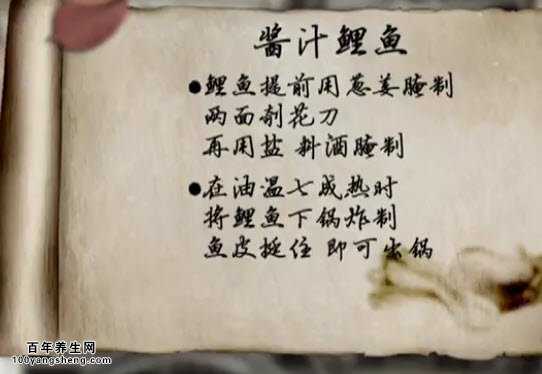 酱汁鲤鱼
●鲤鱼提前用葱姜腌制
两面剞花刀
再用盐 料酒腌制
●在油温七成热时
将鲤鱼下锅炸制
鱼皮挺住 即可出锅
百年养生网
100yangsheng.com